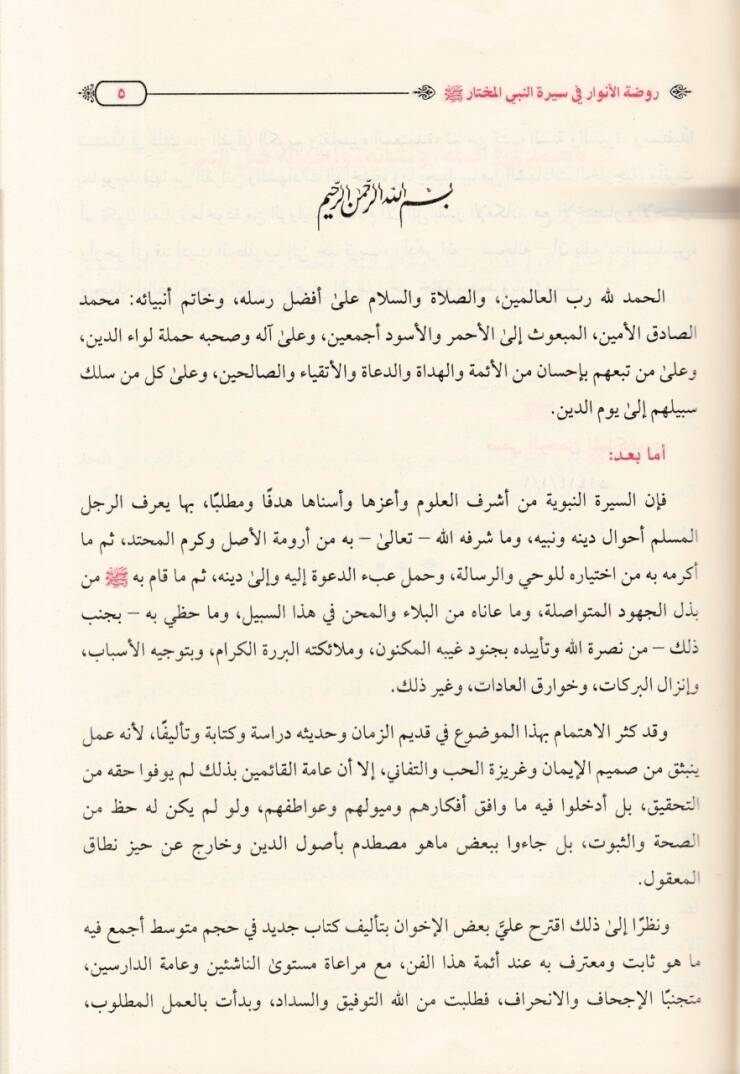 روضة الأنوار في سيرة النبي المختار ﷺ
٥
بسم الله الرحمن الرحيم
الحمد لله رب العالمين، والصلاة والسلام علىٰ أفضل رسله، وخاتم أنبيائه: محمد
الصادق الأمين، المبعوث إلىٰ الأحمر والأسود أجمعين، وعلىٰ آله وصحبه حملة لواء الدين،
وعلىٰ من تبعهم بإحسان من الأئمة والهداة والدعاة والأتقياء والصالحين، وعلىٰ كل من سلك
سبيلهم إلىٰ يوم الدين.
أما بعد:
فإن السيرة النبوية من أشرف العلوم وأعزها وأسناها هدفًا ومطلبًا، بها يعرف الرجل
المسلم أحوال دينه ونبيه، وما شرفه الله – تعالىٰ – به من أرومة الأصل وكرم المحتد، ثم ما
أكرمه به من اختياره للوحي والرسالة، وحمل عبء الدعوة إليه وإلىٰ دينه، ثم ما قام به ﷺ من
بذل الجهود المتواصلة، وما عاناه من البلاء والمحن في هذا السبيل، وما حظي به – بجنب
ذلك – من نصرة الله وتأييده بجنود غيبه المكنون، وملائكته البررة الكرام، وبتوجيه الأسباب،
وإنزال البركات، وخوارق العادات، وغير ذلك.
وقد كثر الاهتمام بهذا الموضوع في قديم الزمان وحديثه دراسة وكتابة وتأليفًا، لأنه عمل
ينبثق من صميم الإيمان وغريزة الحب والتفاني، إلا أن عامة القائمين بذلك لم يوفوا حقه من
التحقيق، بل أدخلوا فيه ما وافق أفكارهم وميولهم وعواطفهم، ولو لم يكن له حظ من
الصحة والثبوت، بل جاءوا ببعض ماهو مصطدم بأصول الدين وخارج عن حيز نطاق
المعقول.
ونظرًا إلىٰ ذلك اقترح عليَّ بعض الإخوان بتأليف كتاب جديد في حجم متوسط أجمع فيه
ما هو ثابت ومعترف به عند أئمة هذا الفن، مع مراعاة مستوىٰ الناشئين وعامة الدارسين،
متجنبًا الإجحاف والانحراف، فطلبت من الله التوفيق والسداد، وبدأت بالعمل المطلوب،